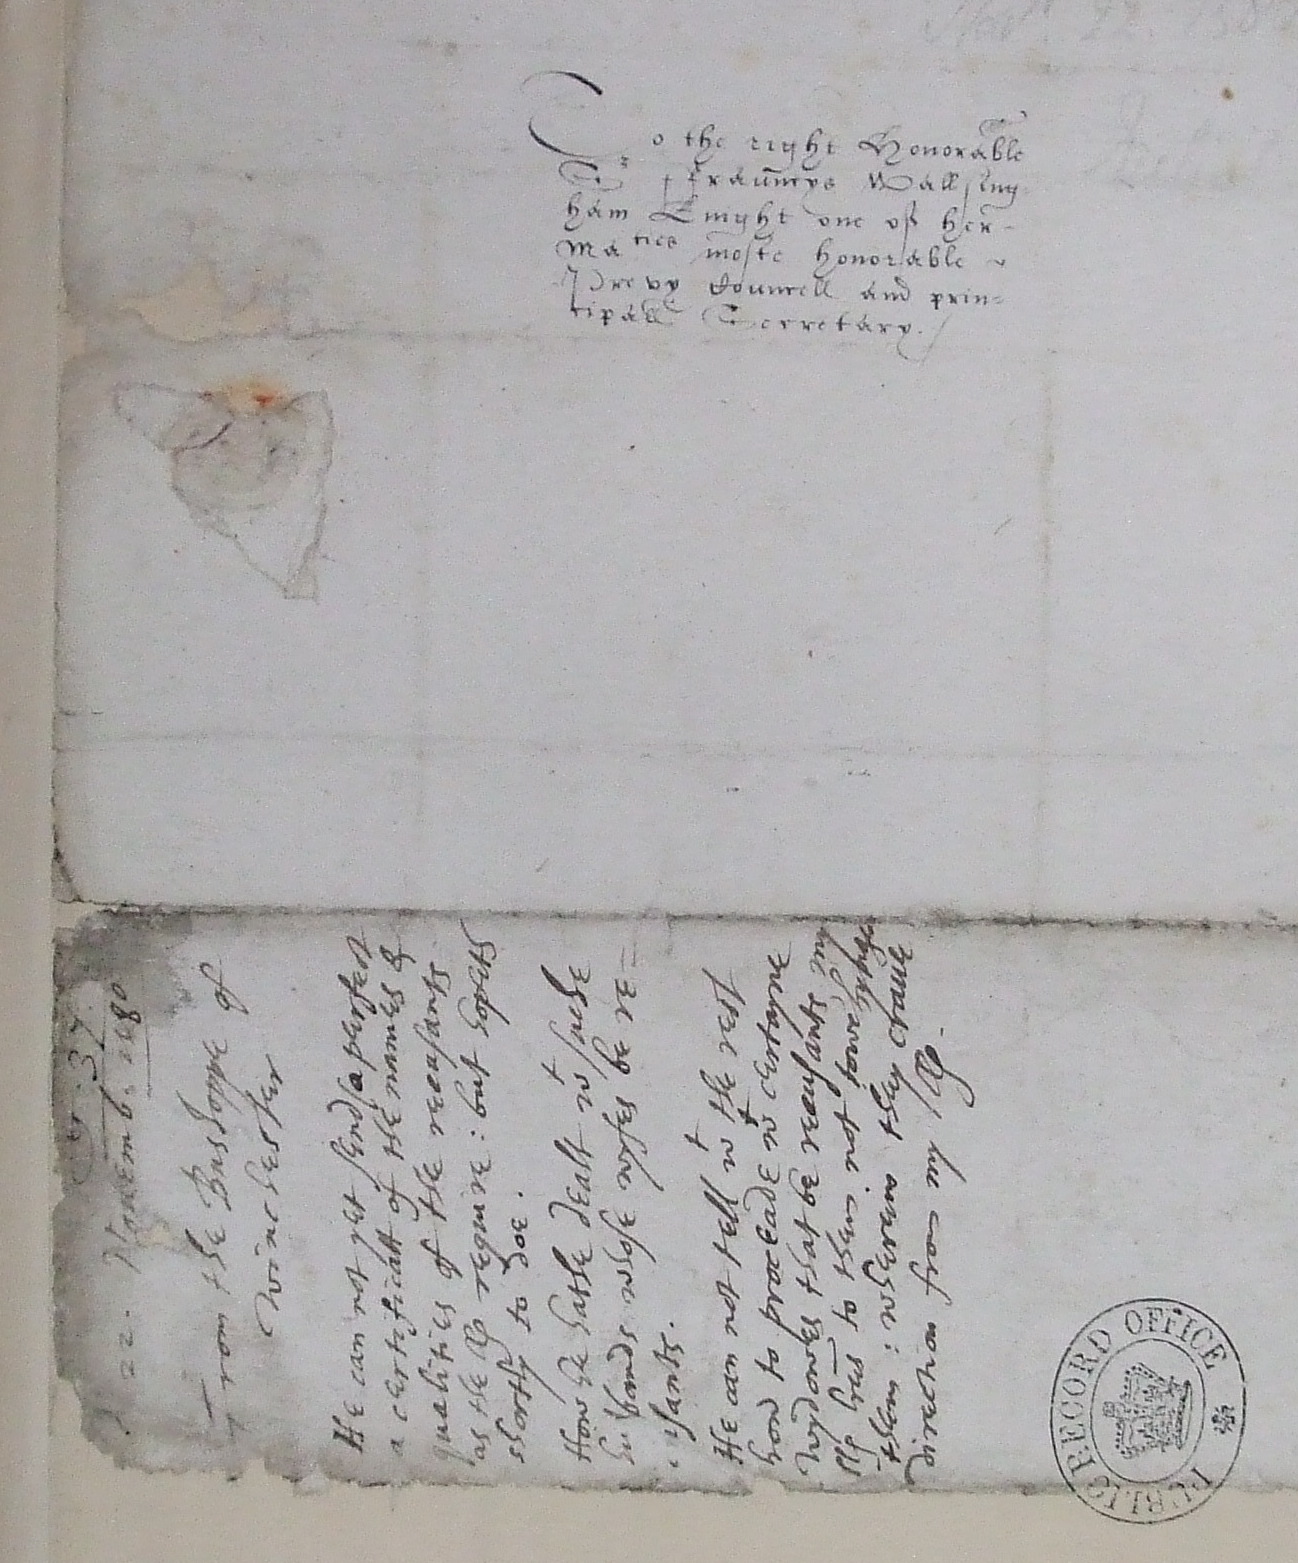 To the right Honorable
Sr ffrauncys Wallsing
ham Knight one of her
Maties moste honorable
Prevy Councell and prin=
cipall Secretary.
37
22. Novemb. 1580
From the Busshoppe of
Winchester
He can not yet send a perfect
a certificatt of the names &
qualities of the recusants
as the llps require: but hopith
shortly to doe.
How he hathe dealt wt suche
husbands whose wyfes be re=
cusants.
He can not tell wt the rest
how to proceade wt certayne
wydowes that be recusants
to them not
them: wherein they crave
direction from yor llps.
PUBLIC RECORD OFFICE